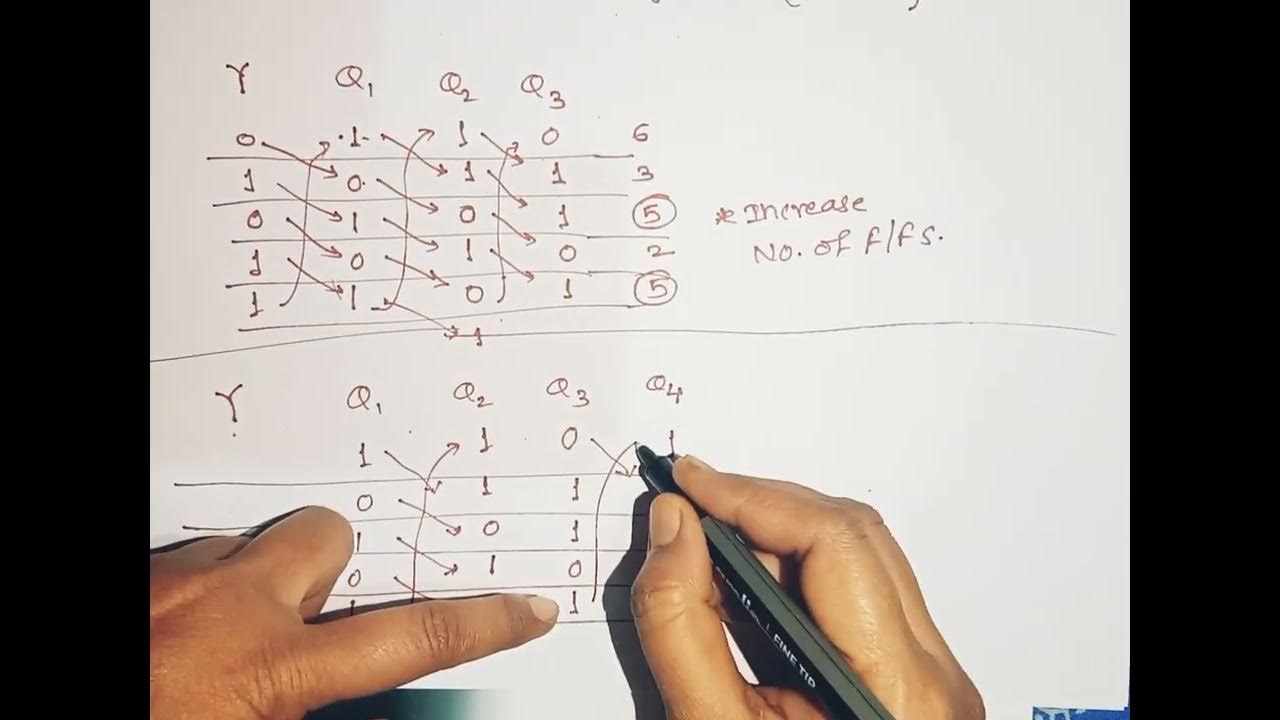 Y Q1 Q2 Q3
0 1 1 0 6
1 0 1 1 3
0 1 0 1 5
1 0 1 0 2
1 1 0 1 5
1
* Increase
No. of f/fs.
Y Q1 Q2 Q3 Q4
1 1 0 1
0 1 1
1 0 1
0 1 0
1 1
FINE TIP